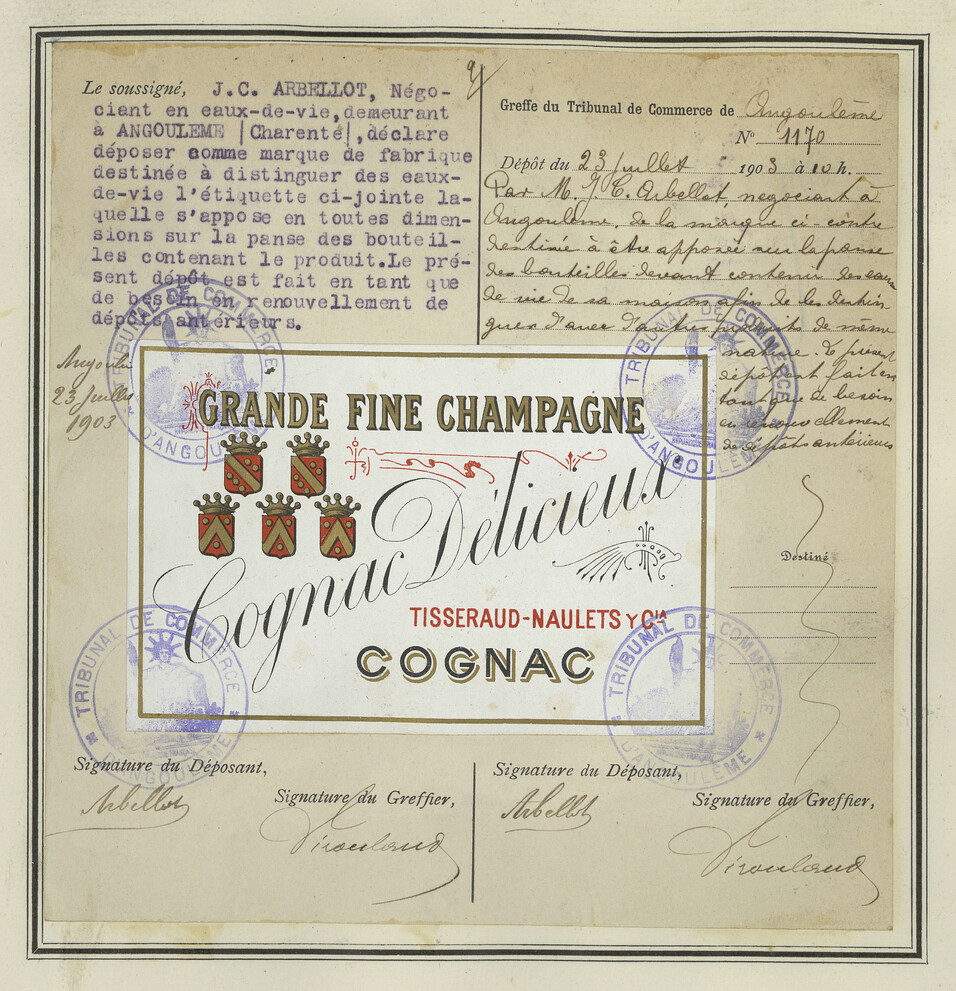 Le soussigné, J.C. ARBELLOT, Négo-
ciant en eaux-de-vie,demeurant
à ANGOULEME |Charente|,déclare
déposer comme marque de fabrique
destinée à distinguer des eaux-
de-vie l'étiquette ci-jointe la-
quelle s'appose en toutes dimen-
sions sur la panse des bouteil-
les contenant le produit.Le pré-
sent dépôt est fait en tant que
de besoin en renouvellement de
dépôts antérieurs.
Angoulême
23 juillet
1903
Greffe du Tribunal de Commerce de Angoulême
N° 1170
Dépôt du 23 juillet 1903 à 10 h.
Par M. J. C. Arbellot, negociant à
Angoulême, de la marque ci-contre
destinée à être apposée sur la panse
des bouteilles devant contenir des eaux
de vie de sa maison afin de les distin
guer d'avec d'autres produits de même
nature. Le présent
dépôt est fait en
tant que de besoin
en renouvellement
de dépôts antérieurs
GRANDE FINE CHAMPAGNE
Cognac Délicieux
TISSERAUD-NAULETS Y CIA
COGNAC
Destiné
TRIBUNAL DE COMMERCE
D'ANGOULEME
TRIBUNAL DE COMMERCE
D'ANGOULEME
TRIBUNAL DE COMMERCE
D'ANGOULEME
TRIBUNAL DE COMMERCE
D'ANGOULEME
Signature du Déposant,
Arbellot
Signature du Greffier,
Signature du Déposant,
Arbellot
Signature du Greffier,